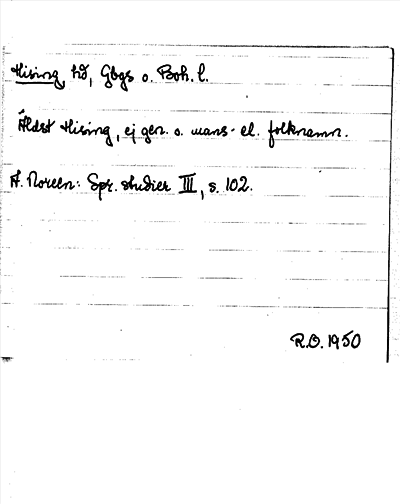 Hising, hd, Gbgs o. Boh. l.
Äldst Hising, ej gen. o. mans- el. folknamn.
A. Noreen: Spr. studier III, s. 102.
R.O. 1950